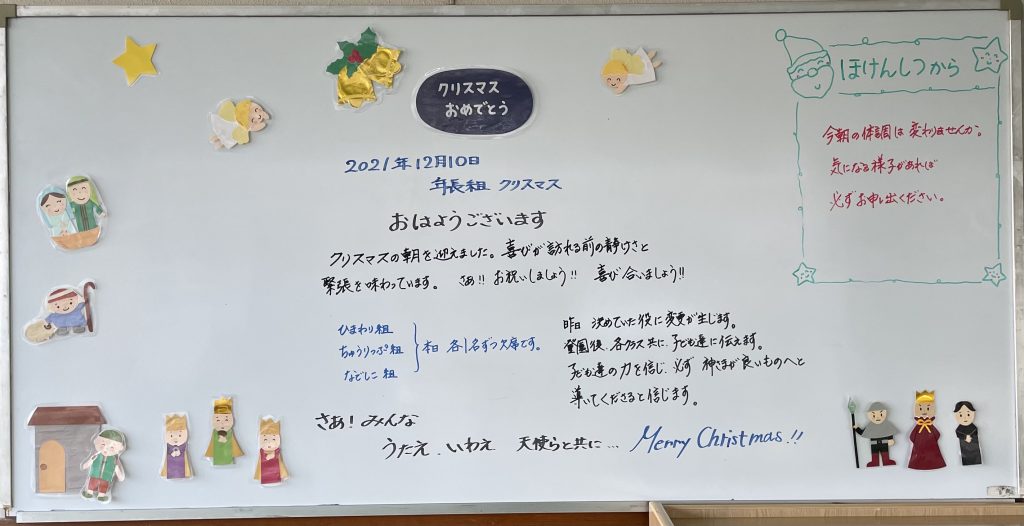 クリスマス
おめでとう
ほけんしつから
今朝の体調は変わりませんか。
気になる様子があれば
必ずお申し出ください。
2021年12月10日
年長組 クリスマス
おはようございます
クリスマスの朝を迎えました。喜びが訪れる前の静けさと
緊張を味わっています。 さぁ!! お祝いしましょう!! 喜び合いましょう!!
ひまわり組
ちゅうりっぷ組
なでしこ組
本日 各1名ずつ欠席です。
昨日 決めていた役に変更が生じます。
登園後、各クラス共に、子ども達に伝えます。
子ども達の力を信じ、必ず 神さまが良いものへと
導いてくださると信じます。
さあ! みんな
うたえ、いわえ 天使らと共に… Merry Christmas!!